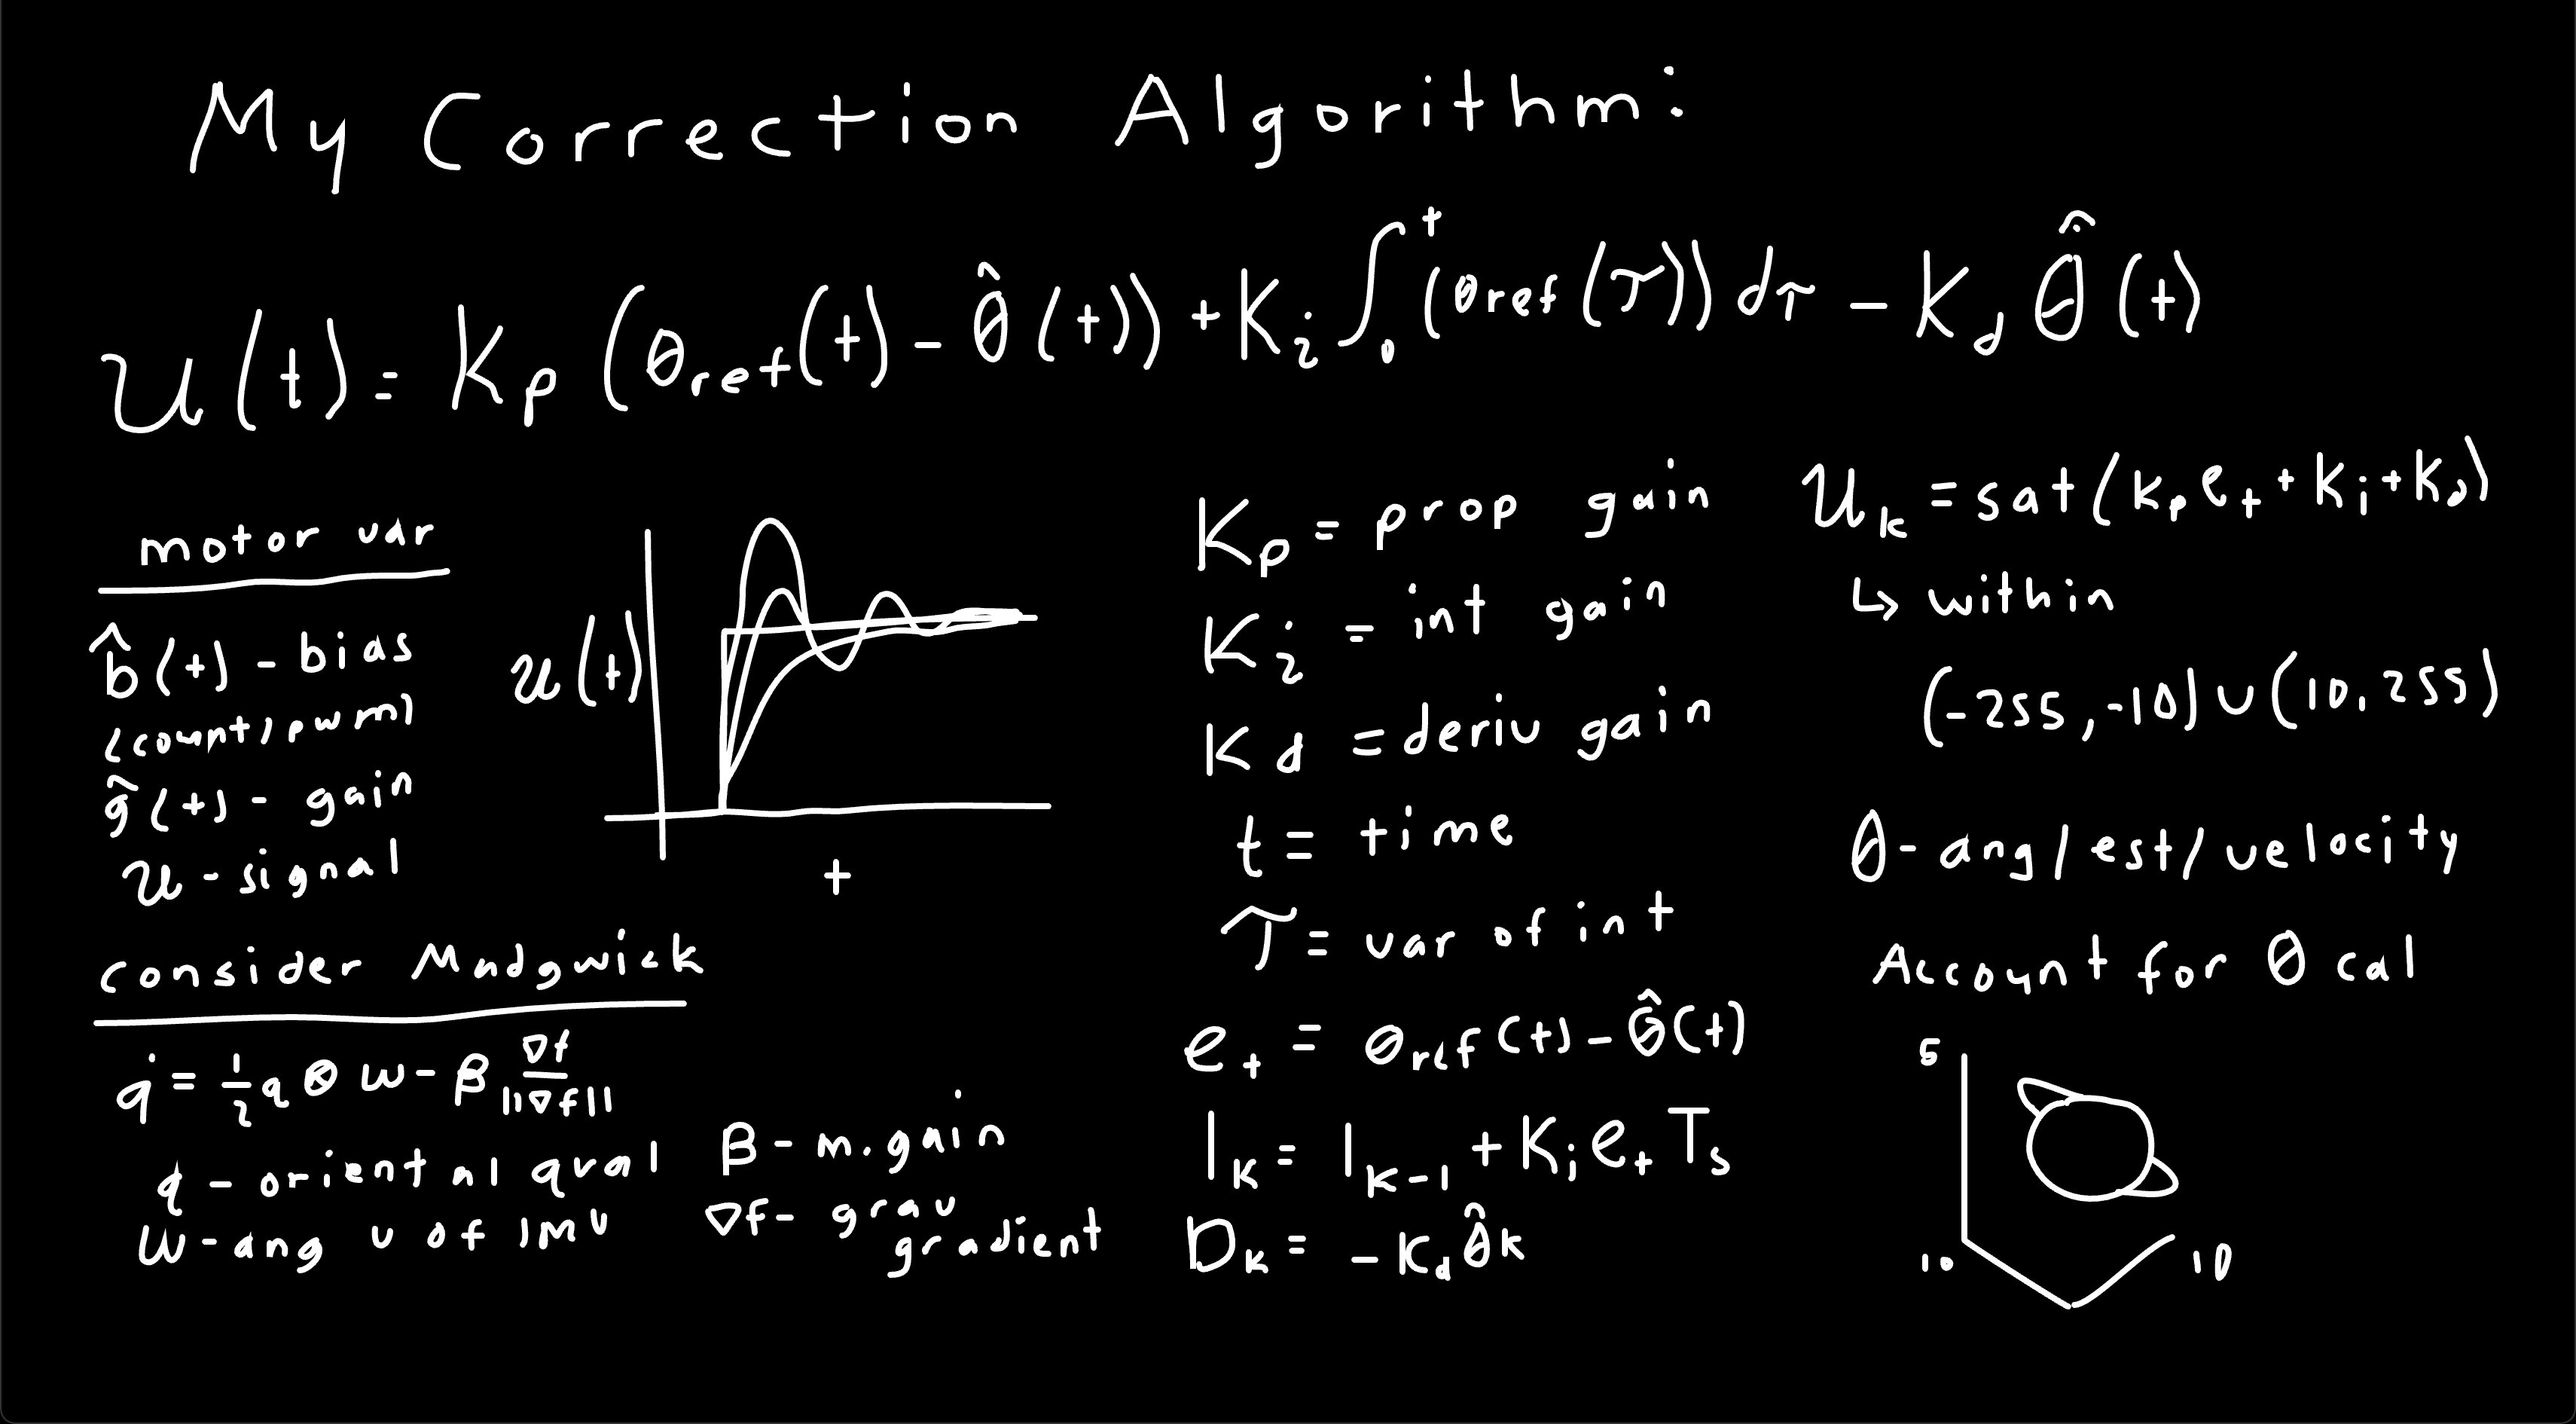 My Correction Algorithm:
u(t) = Kp (θref(t) - θ̂(t)) + Ki ∫₀ᵗ (θref(τ)) dτ - Kd θ̂̇(t)
motor var
b̂(t) - bias
(count/pwm)
ĝ(t) - gain
u - signal
u(t)
t
consider Madgwick
q̇ = 1/2 q ⊗ w - β ∇f/||∇f||
q - oriental qual
w - ang v of IMU
β - m. gain
∇f - grav
gradient
Kp = prop gain
Ki = int gain
Kd = deriv gain
t = time
τ = var of int
et = θref(t) - θ̂(t)
Ik = Ik-1 + Ki et Ts
Dk = -Kd θ̂k
uk = sat(Kp et + Ki + Kd)
↳ within
(-255, -10) ∪ (10, 255)
θ - ang/est/velocity
Account for θ cal
5
10
10